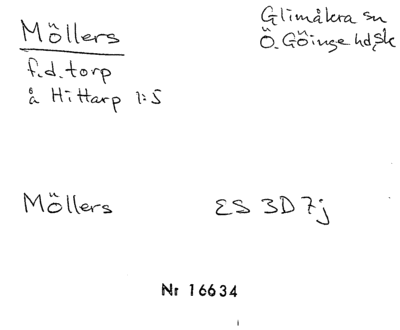 Möllers
Glimåkra sn
Ö. Göinge hd, Sk
f.d. torp
å Hittarp 1:5
Möllers
ES 3D 7j
Nr 16634